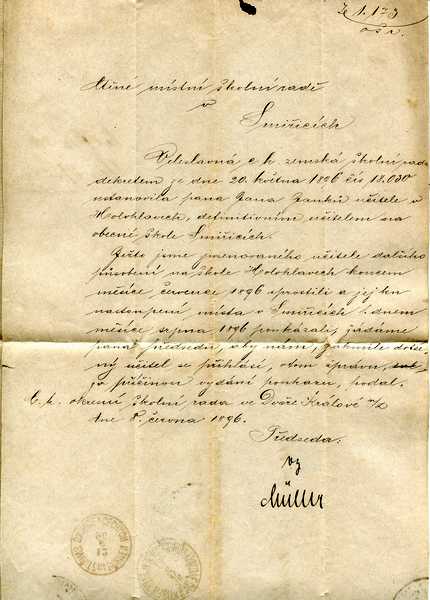 Ctěné místní školní radě
v
Smiřicích
Veleslavná c k zemská školní rada
dekretem ze dne 20. května 1896 čís 13.030
ustanovila pana Jana Janků učitele v
Holohlavech, definitivním učitelem na
obecné škole Smiřicích.
jsme jmenovaného učitele dalšího
působení na škole v Holohlavech koncem
měsíce července 1896 sprostili a jej ku
nastoupení místa v Smiřicích 1. dnem
měsíce srpna 1896 poukázali, žádáme
pana předsedu, aby nám, jakmile dotče-
ný učitel se přihlásí, o tom zprávu,
příčinou vydání poukazu, podal.
C. k. okresní školní rada ve Dvoře Králové n/L
dne 8. června 1896.
Předseda:
vz
Müller